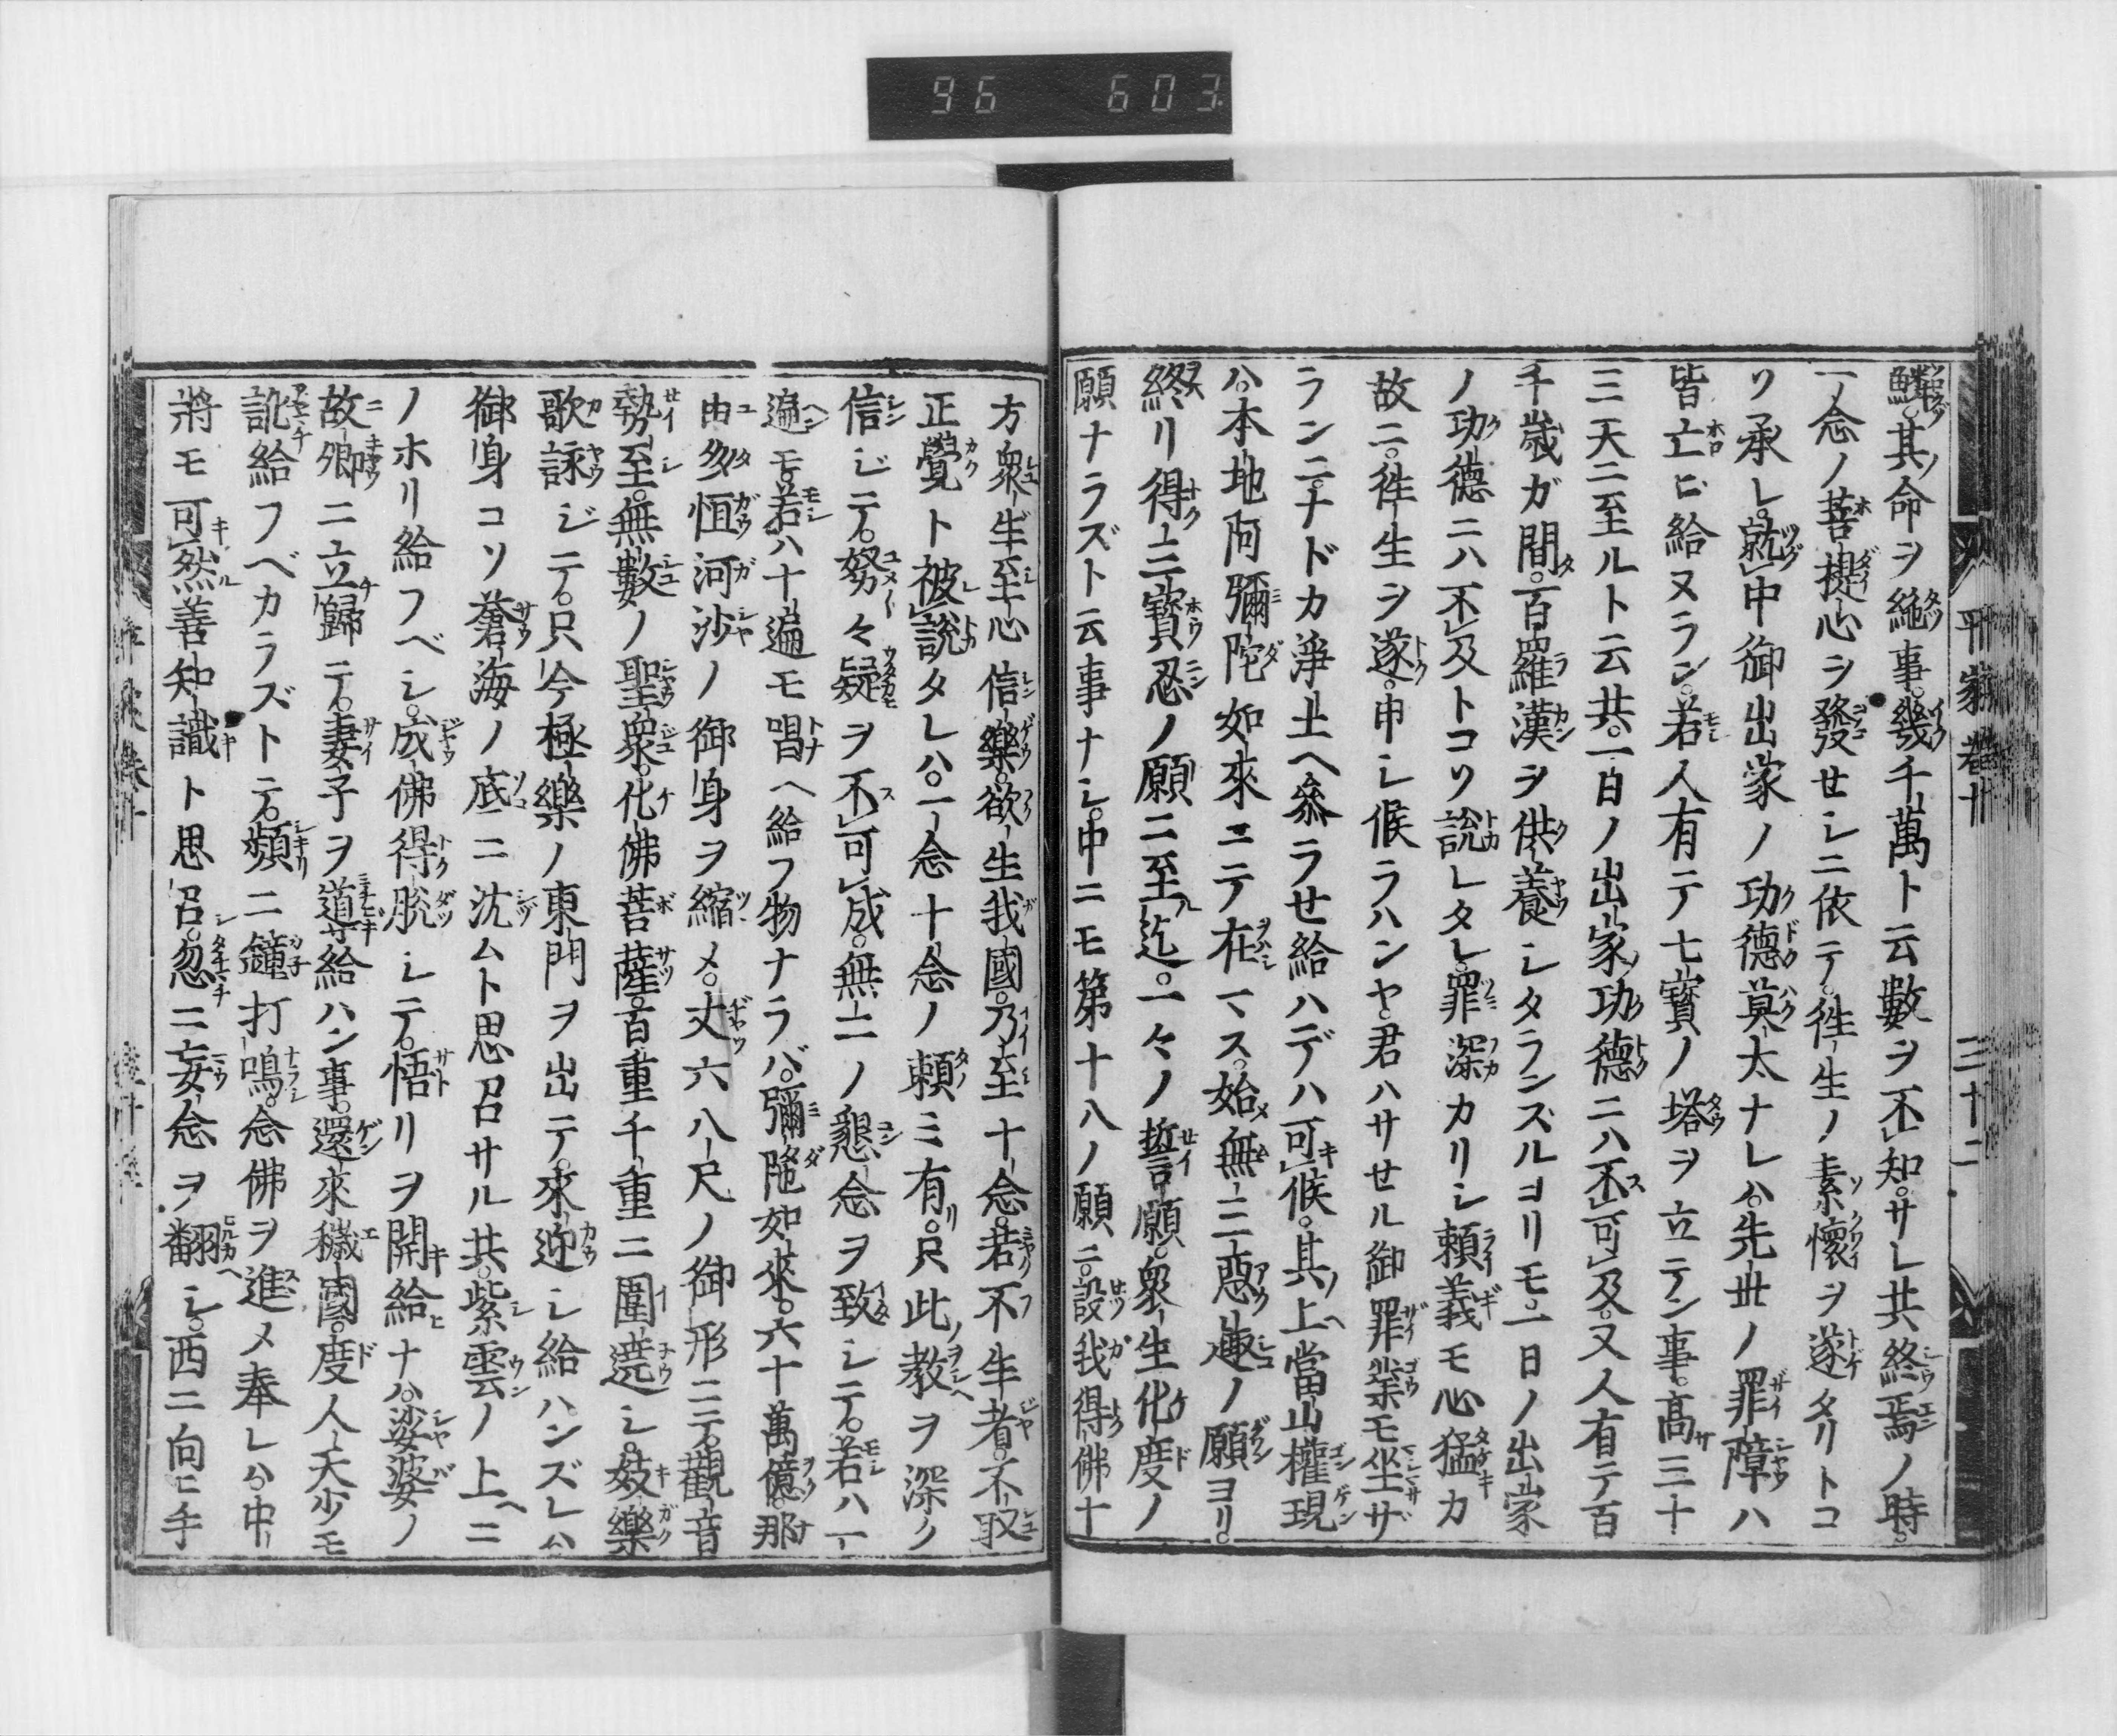 96 603
平家巻十 三十二
鱗。其ノ命ヲ絶ツ事。幾千萬ト云數ヲ不知。サレ共終焉ノ時。
一念ノ菩提心ヲ發セシニ依テ。往生ノ素懷ヲ遂タリトコ
ソ承レ。就中御出家ノ功德莫太ナレハ。先世ノ罪障ハ
皆亡ビ給ヌラン。若人有テ七寶ノ塔ヲ立テン事。高サ三十
三天ニ至ルト云共。一日ノ出家ノ功德ニハ不可及。又人有テ百
千歳ガ間。百羅漢ヲ供養シタランズルヨリモ。一日ノ出家
ノ功德ニハ不及トコソ說レタレ。罪深カリシ頼義モ心猛カ
故ニ。往生ヲ遂。申シ候ラハンヤ。君ハサせル御罪業モ坐サヾ
ランニ。ナドカ淨土ヘ參ラせ給ハデハ可候。其ノ上ヘ當山權現
ハ。本地阿彌陀如來ニテ在マス。始メ無三惡趣ノ願ヨリ。
終リ得三寶忍ノ願ニ至ル迄。一々ノ誓願。衆生化度ノ
願ナラズト云事ナシ。中ニモ第十八ノ願ニ。設我得佛十
方衆生至心信樂。欲生我國。乃至十念。若不生者。不取
正覺ト被說タレハ。一念十念ノ頼ミ有リ。只此ノ教ヲ深ク
信ジテ。努々疑ヲ不可成。無二ノ懇念ヲ致シテ。若ハ一
遍モ。若ハ十遍モ唱ヘ給フ物ナラバ。彌陀如來。六十萬億。那
由多恒河沙ノ御身ヲ縮メ。丈六八尺ノ御形ニテ。觀音
勢至。無數ノ聖衆。化佛菩薩。百重千重ニ圍遶シ。妓樂
歌詠ジテ。只今極樂ノ東門ヲ出テ。來迎シ給ハンズレハ
御身コソ蒼海ノ底ニ沈ムト思召サル共。紫雲ノ上ヘニ
ノホリ給フベシ。成佛得脫シテ。悟リヲ開キ給ヒナハ。娑婆ノ
故郷ニ立歸テ。妻子ヲ道導給ハン事。還來穢國。度人天少モ
訛給フベカラズトテ。頻ニ鐘打鳴。念佛ヲ進メ奉レハ。中
將モ可然善知識ト思召。忽ニ妄念ヲ翻ヘシ。西ニ向ヒ手